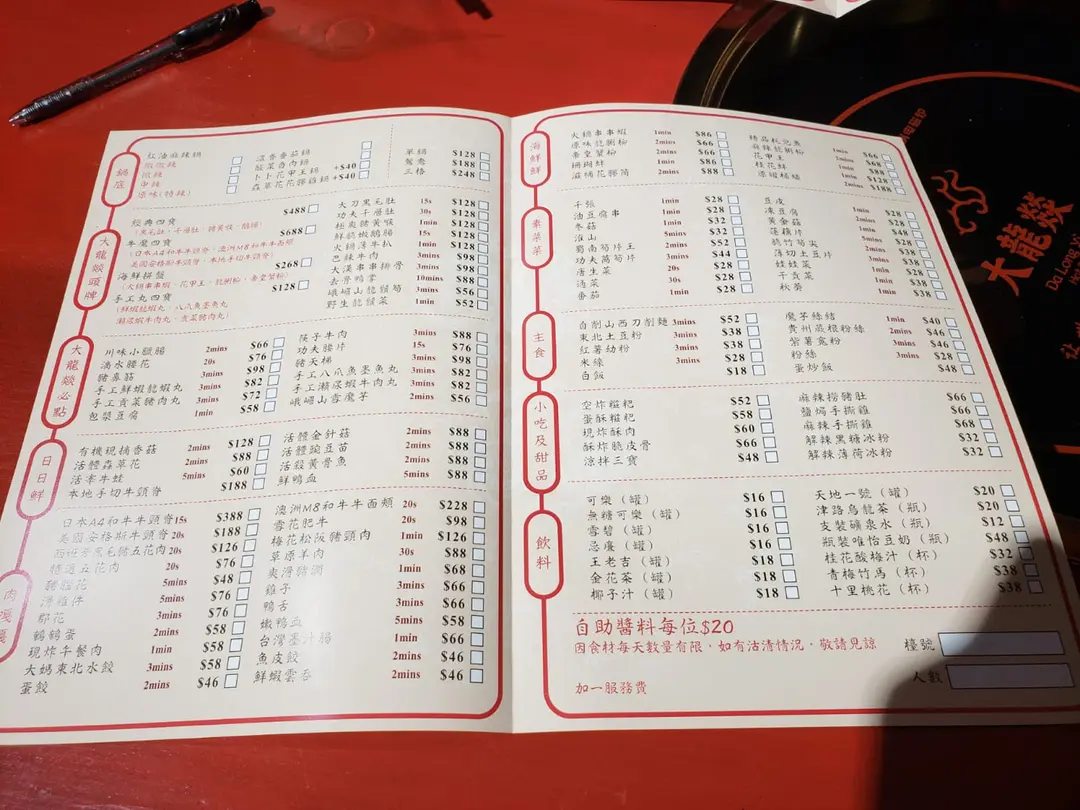 鍋底
紅油麻辣鍋
微微辣
微辣
重辣
原味(特辣)
滋香番茄鍋
酸菜魚肉鍋
卜卜花甲王鍋 +$40
蟲草花花膠雞鍋 +$40
單鍋 $128
鴛鴦 $188
三格 $248
大龍燚頭牌
經典四寶 $488
(黑毛肚，千層肚，豬黃喉，鵝腸)
牛魔四寶 $688
(日本A4和牛牛頸脊，澳洲M8和牛牛面頰
美國安格斯牛頸脊，本地手切牛頸脊)
海鮮拼盤 $268
(大鍋串串蝦，花甲王，龍脷柳，秦皇蟹柳)
手工丸四寶 $128
(鮮蝦龍蝦丸，八爪魚墨魚丸
瀨尿蝦牛肉丸，貢菜豬肉丸)
大刀黑毛肚 15s $128
功夫千層肚 30s $128
極爽豬黃喉 1min $128
鮮脆嫩鵝腸 15s $128
大鍋薄牛扒 1min $128
巴辣牛肉 3mins $98
大漢串串排骨 3mins $98
去骨鴨掌 10mins $98
峨嵋山龍鬚筍 3mins $56
野生龍鬚菜 1min $52
大龍燚必點
川味小臘腸 2mins $66
滴水腰花 20s $76
豬鼻筋 3mins $98
手工鮮蝦龍蝦丸 3mins $82
手工貢菜豬肉丸 3mins $72
包漿豆腐 1min $58
筷子牛肉 3mins $88
功夫腰片 15s $76
豬天梯 3mins $98
手工八爪魚墨魚丸 3mins $82
手工瀨尿蝦牛肉丸 3mins $82
峨嵋山雪魔芋 2mins $56
日日鮮
有機現摘香菇 2mins $128
活體蟲草花 2mins $88
活宰牛蛙 5mins $60
本地手切牛頸脊 $188
活體金針菇 2mins $88
活體豌豆苗 2mins $88
活殺黃骨魚 5mins $88
鮮鴨血 5mins $58
肉嘎嘎
日本A4和牛牛頸脊 15s $388
美國安格斯牛頸脊 20s $188
西班牙黑毛豬五花肉 20s $126
精選五花肉 20s $76
豬腦花 5mins $48
滑雞件 5mins $76
郡花 3mins $76
鵪鶉蛋 2mins $58
現炸午餐肉 1min $58
大媽東北水餃 3mins $58
蛋餃 2mins $46
澳洲M8和牛牛面頰 20s $228
雪花肥牛 20s $98
梅花松阪豬頸肉 1min $126
草原羊肉 30s $88
爽滑豬潤 1min $68
雞子 3mins $66
鴨舌 3mins $66
嫩鴨血 5mins $58
台灣墨汁腸 1min $66
魚皮餃 2mins $46
鮮蝦雲吞 2mins $46
海鮮
大鍋串串蝦 1min $86
原味龍脷柳 2mins $66
秦皇蟹柳 2mins $66
珊瑚蚌 1min $86
滋補花膠筒 2mins $88
精品札記魚 1min $66
麻辣龍脷柳 1min $68
花甲王 1min $88
桂花鮮 2mins $128
原隻桶鮑 2mins $188
素菜菜
千張 1min $28
油豆腐串 1min $28
冬菇 1min $32
淮山 5mins $32
蜀南筍片王 2mins $52
功夫萵筍片 3mins $44
唐生菜 20s $28
通菜 30s $28
番茄 1min $28
豆皮 1min $28
凍豆腐 2mins $28
黃金菇 2mins $48
蓮藕片 5mins $28
脆竹筍尖 3mins $38
薄切土豆片 2mins $28
娃娃菜 3mins $28
干貢菜 1min $38
秋葵 1min $38
主食
自削山西刀削麵 3mins $52
東北土豆粉 3mins $38
紅薯幼粉 3mins $38
米線 3mins $28
白飯 $18
魔芋絲結 1min $40
貴州蕨根粉絲 2mins $46
紫薯寬粉 3mins $46
粉絲 3mins $28
蛋炒飯 $48
小吃及甜品
空炸糍粑 $52
蛋酥糍粑 $58
現炸酥肉 $60
酥炸脆皮骨 $66
涼拌三寶 $48
麻辣撈豬肚 $66
鹽焗手撕雞 $66
麻辣手撕雞 $68
解辣黑糖冰粉 $32
解辣薄荷冰粉 $32
飲料
可樂 (罐) $16
無糖可樂 (罐) $16
雪碧 (罐) $16
忌廉 (罐) $16
王老吉 (罐) $18
金花茶 (罐) $18
椰子汁 (罐) $18
天地一號 (罐) $20
津路烏龍茶 (瓶) $20
支裝礦泉水 (瓶) $12
瓶裝唯怡豆奶 (瓶) $48
桂花酸梅汁 (杯) $32
青梅竹馬 (杯) $38
十里桃花 (杯) $38
自助醬料每位$20
因食材每天數量有限，如有沽清情況，敬請見諒
加一服務費
檯號
人數
大龍燚